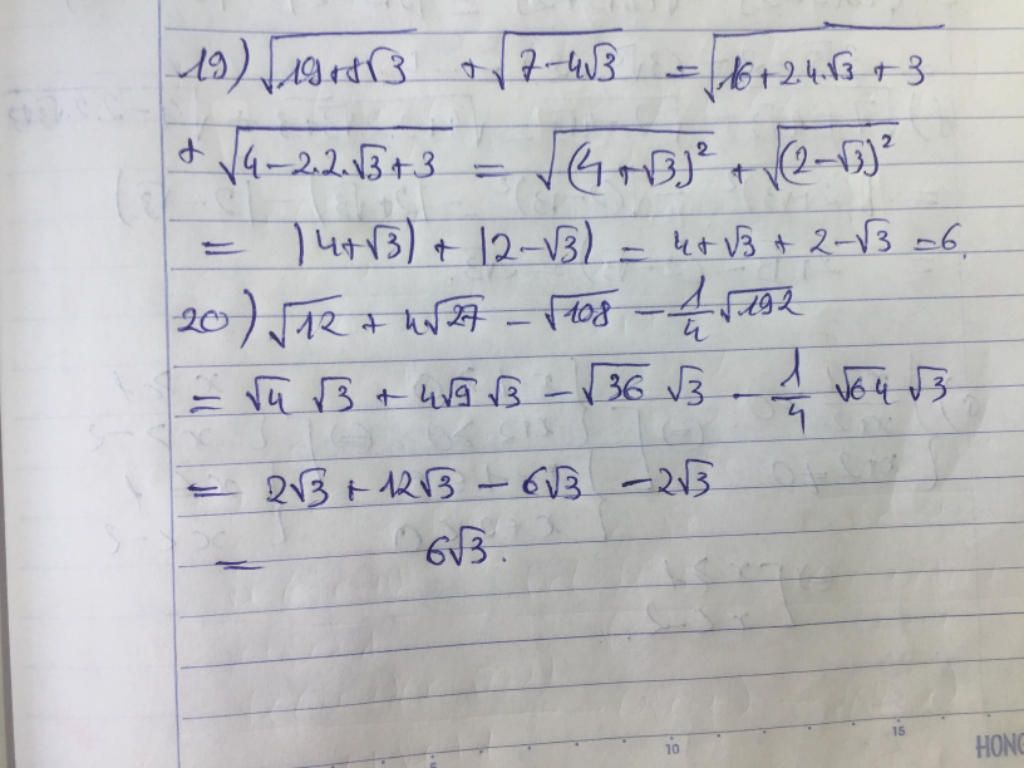 19) √(19+8√3) + √(7-4√3) = √(16+2.4.√3+3)
+ √(4-2.2.√3+3) = √((4+√3)²) + √((2-√3)²)
= |4+√3| + |2-√3| = 4+√3+2-√3 = 6.
20) √12 + 4√27 - √108 - 1/4 √192
= √4 √3 + 4√9 √3 - √36 √3 - 1/4 √64 √3
= 2√3 + 12√3 - 6√3 - 2√3
= 6√3.
5 10 15 HONG